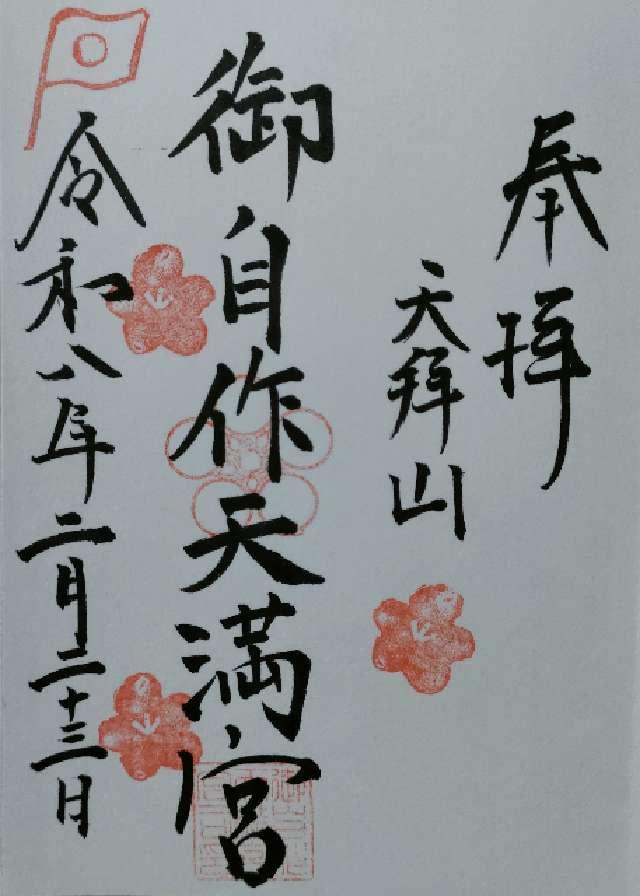 奉拝
天拝山
御自作天満宮
令和八年二月二十三日